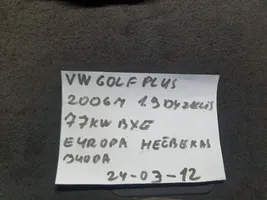 VW GOLF PLUS
2006M 1.9 DYZELIS
77KW BXE
EVROPA HEČBEKAS
JUODA
24-03-12